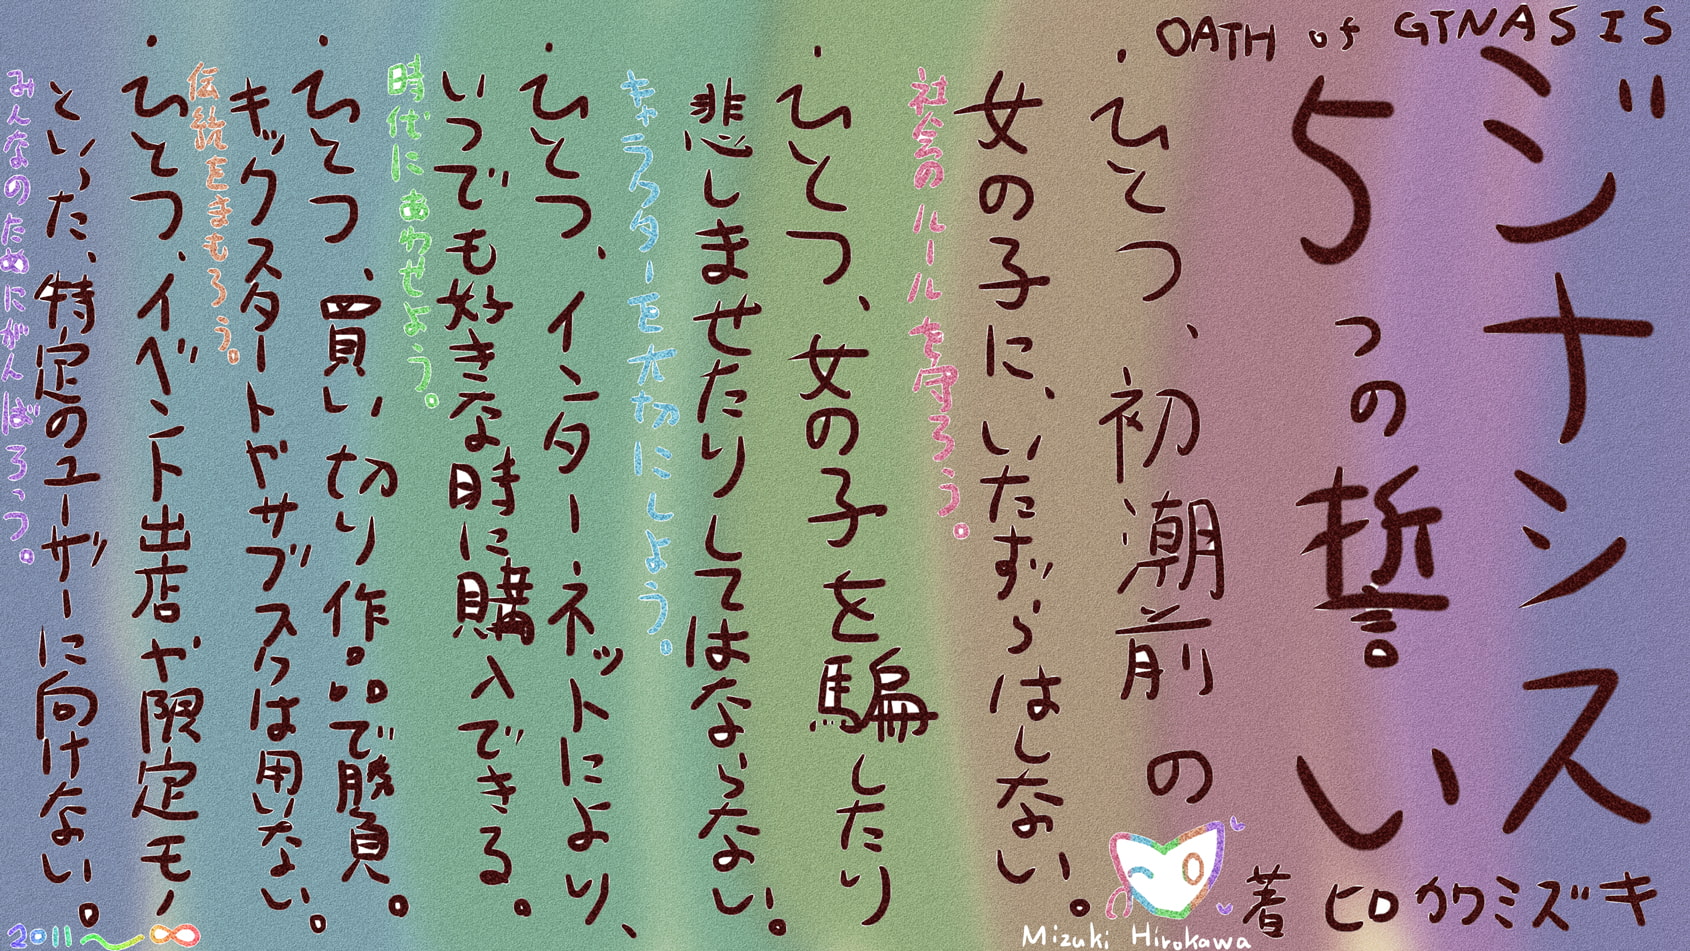 OATH of GINASIS
ジナシス
5つの誓い
ヒロカワミズキ 著
・ひとつ、初潮前の
女の子に、いたずらはしない。
社会のルールを守ろう。
・ひとつ、女の子を騙したり
悲しませたりしてはならない。
キャラクターを大切にしよう。
・ひとつ、インターネットにより、
いつでも好きな時に購入できる。
時代にあわせよう。
・ひとつ、買い切り作品で勝負。
キックスタートやサブスクは用いない。
伝統をまもろう。
・ひとつ、イベント出店や限定モノ
といった、特定のユーザーに向けない。
みんなのためにがんばろっ。
Mizuki Hirokawa
2011〜∞